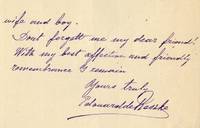 wife and boy.
Dont forgett me my dear friend!
With my best affection and friendly
remembrance I remain
Yours truly
Edouard de Reszke